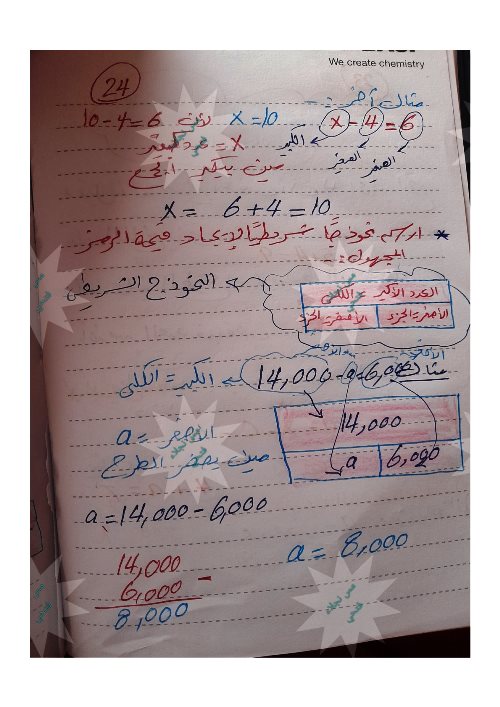 We create chemistry
24
مثال آخر :-
x - 4 = 6
x = 10 لأن 10 - 4 = 6
الكبير الصغير الصغير
x = عدد كبير
مين يكبر الجمع
x = 6 + 4 = 10
* ارسم نموذجًا شريطيًا لإيجاد قيمة الرمز
المجهول :-
النموذج الشريطي
العدد الأكبر = الكلى
الأصغر = الجزء الأصغر = الجزء
مثال
14,000 - a = 6,000
الكبير = الكلى
14,000
a 6,000
الأصغر = a
مين يصغر الطرح
a = 14,000 - 6,000
a = 8,000
14,000
6,000 -
8,000